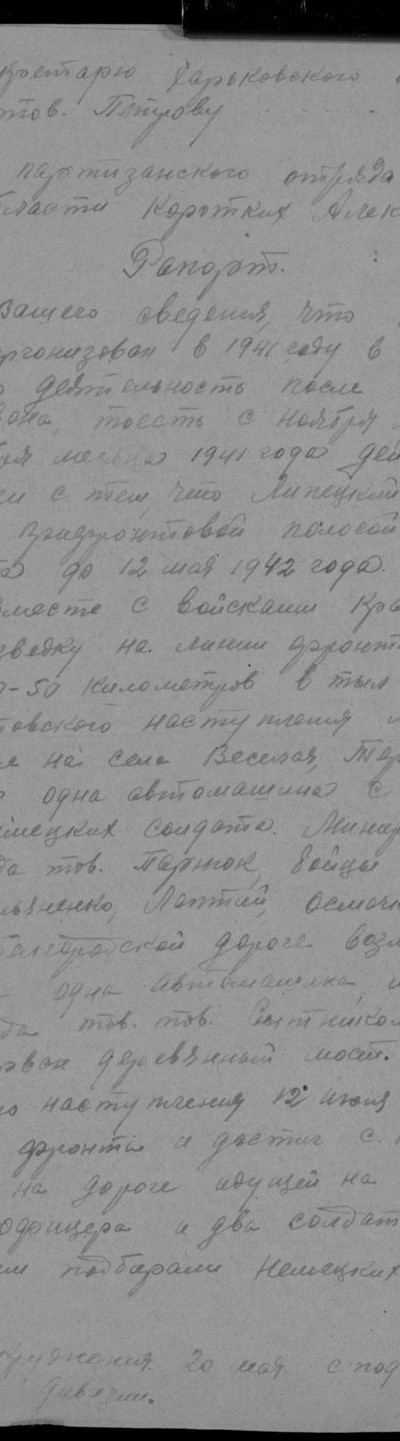 кретарю Харьковского
тов. Петрову
партизанского отряда
бласти Коротких Алек
Рапорт.
Вашего сведения, что
организован в 1941 году в
деятельность после
она, тоесть с ноября
бря месяца 1941 года дей
зи с тем, что Липецкий
прифронтовой полосой
до 12 мая 1942 года.
вместе с войсками Кра
зведку на линии фронта
0-50 километров в тыл
товского наступления
е на села Веселая, Тер
одна автомашина с
немецких солдата. Минир
да тов. Парток, бойцы
льяненко, Лаптий, Осмач
Белгородской дороге возл
одна автомашина, и
да тов. тов. Сытником
рван деревянный мост.
го наступления 12 июня
фронта и достиг с.
на дороге идущей на
офицера и два солдат
ми подбирали немецких
кружения. 20 мая с под
дивизии.